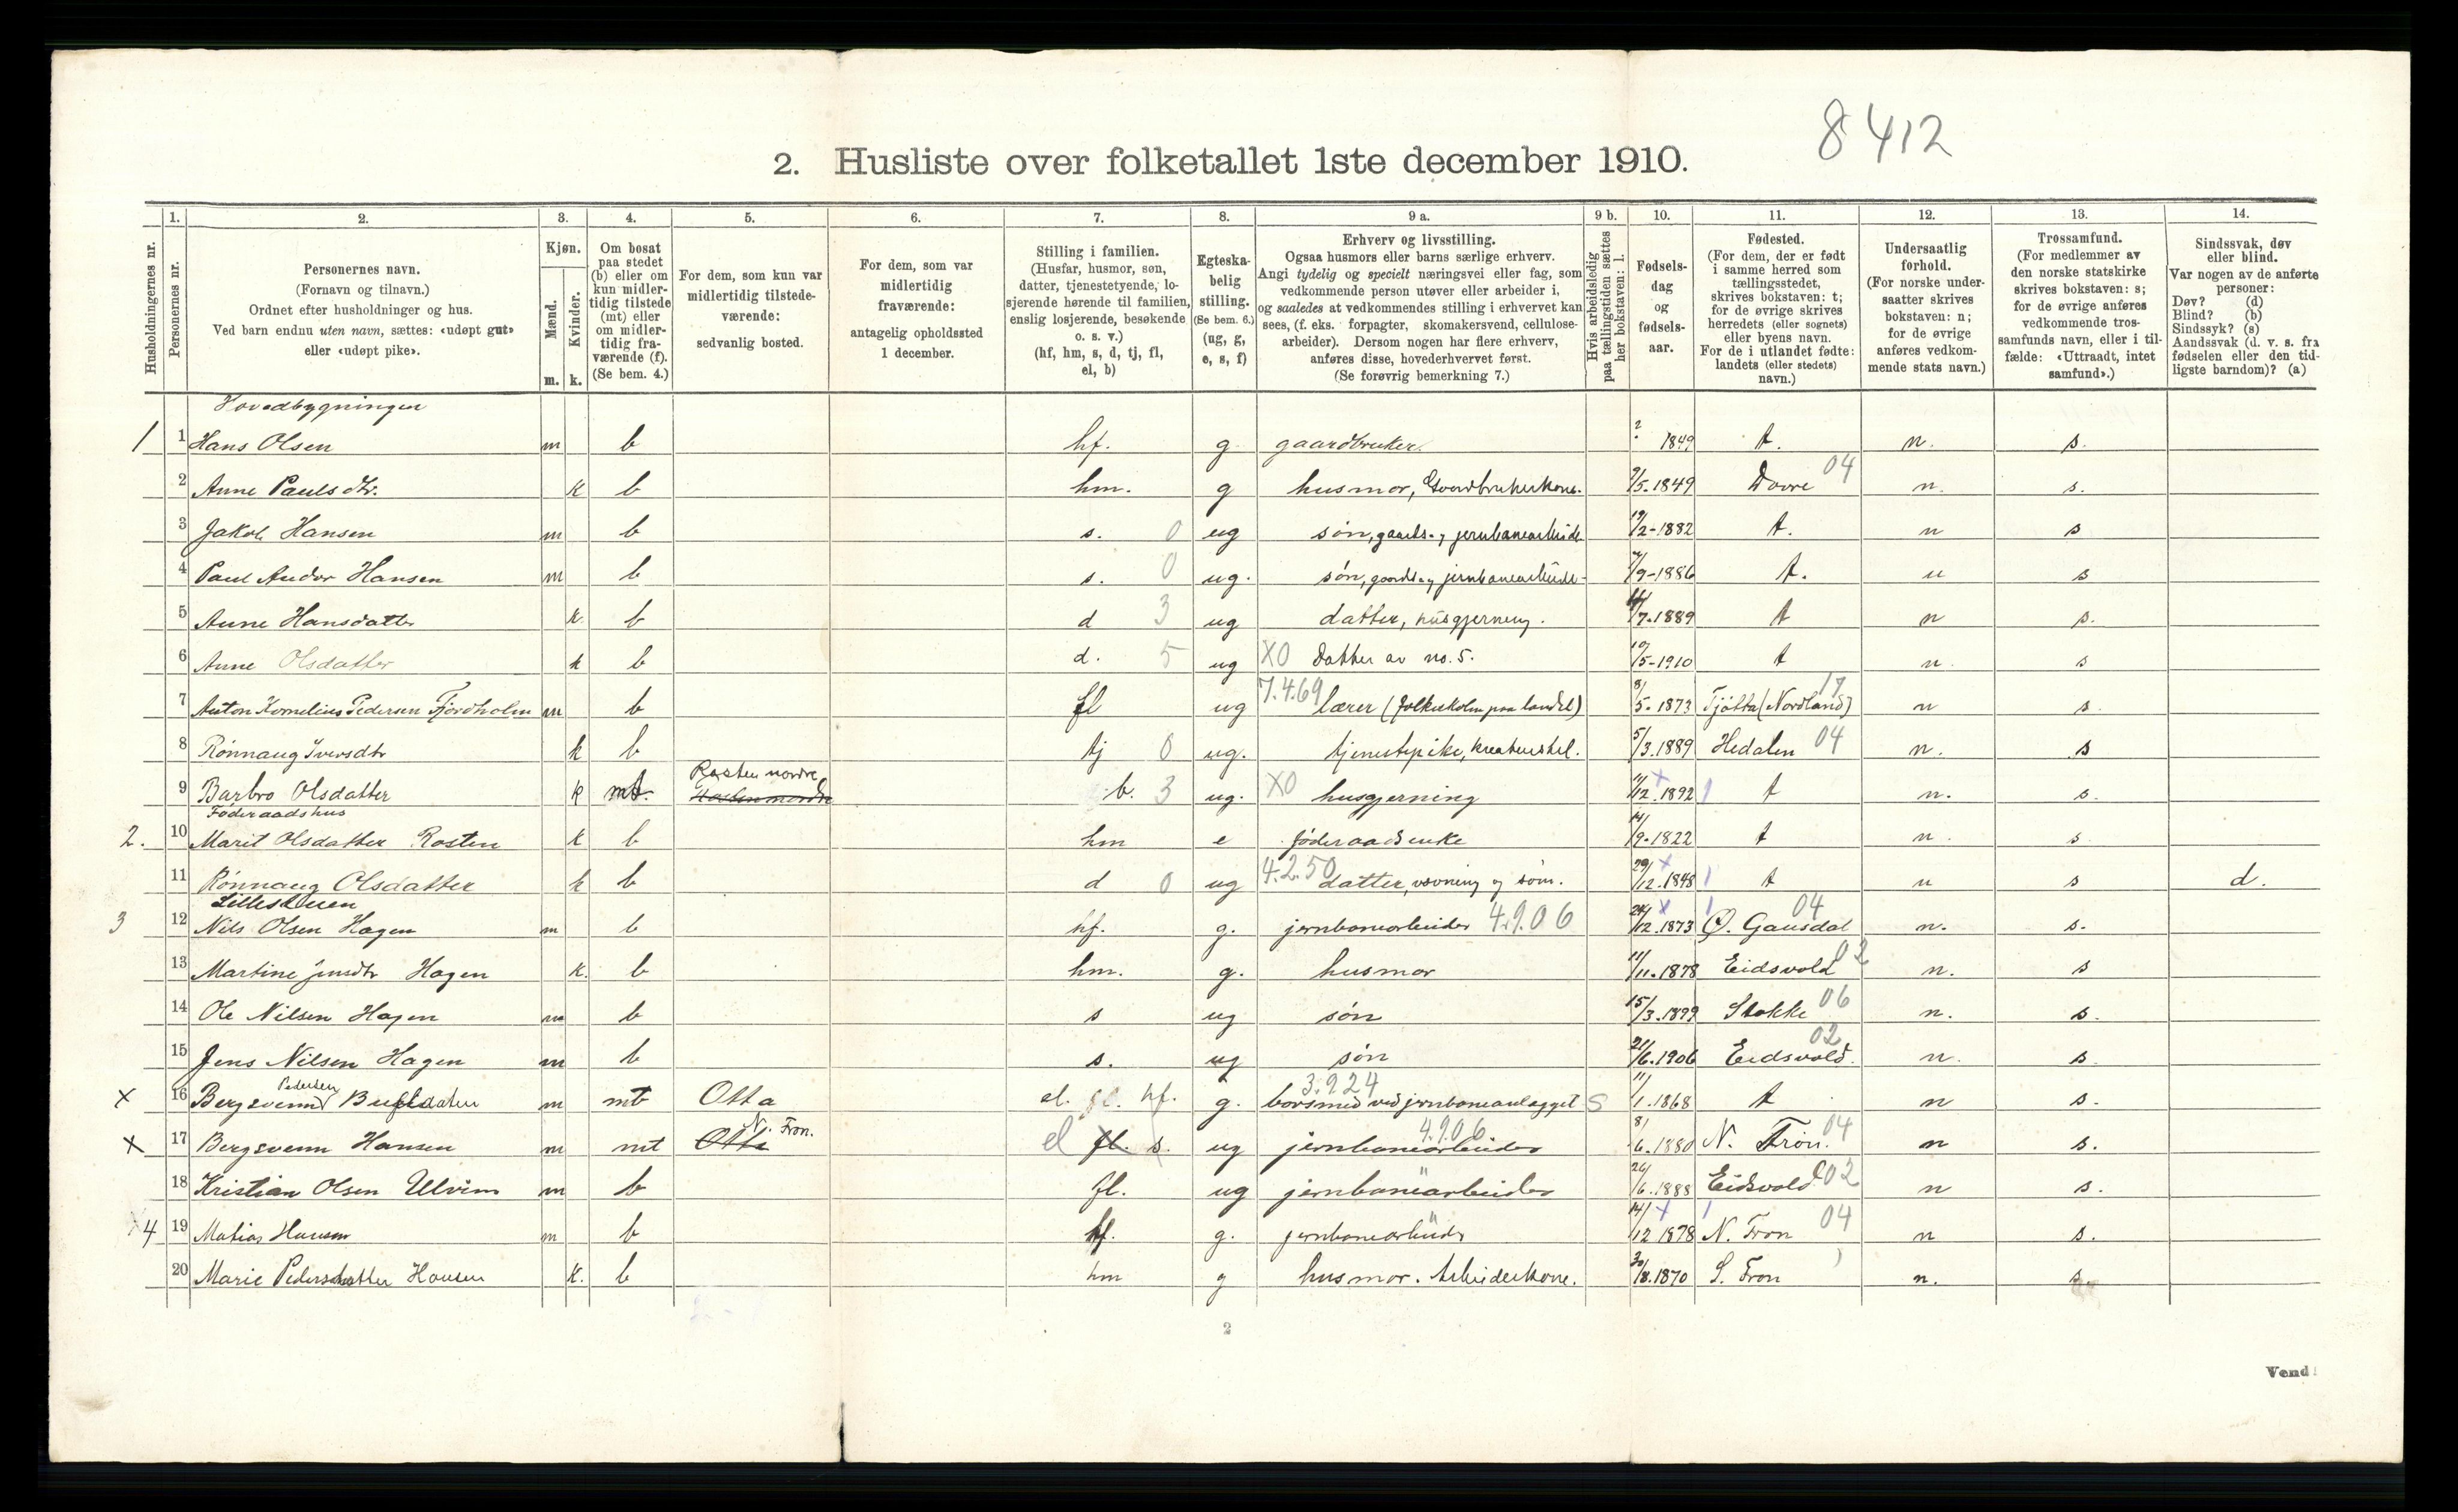 8412
2. Husliste over folketallet 1ste december 1910.
Husholdningernes nr.
1. Personernes nr.
2. Personernes navn. (Fornavn og tilnavn.) Ordnet efter husholdninger og hus. Ved barn endnu uten navn, sættes: «udøpt gut» eller «udøpt pike».
3. Kjøn. Mænd. m. Kvinder. k.
4. Om bosat paa stedet (b) eller om kun midler-tidig tilstede (mt) eller om midler-tidig fra-værende (f). (Se bem. 4.)
5. For dem, som kun var midlertidig tilstede-værende: sedvanlig bosted.
6. For dem, som var midlertidig fraværende: antagelig opholdssted 1 december.
7. Stilling i familien. (Husfar, husmor, søn, datter, tjenestetyende, lo-sjerende hørende til familien, enslig losjerende, besøkende o. s. v.) (hf, hm, s, d, tj, fl, el, b)
8. Egteska-belig stilling. (Se bem. 6.) (ug, g, e, s, f)
9 a. Erhverv og livsstilling. Ogsaa husmors eller barns særlige erhverv. Angi tydelig og specielt næringsvei eller fag, som vedkommende person utøver eller arbeider i, og saaledes at vedkommendes stilling i erhvervet kan sees, (f. eks. forpagter, skomakersvend, cellulose-arbeider). Dersom nogen har flere erhverv, anføres disse, hovederhvervet først. (Se forøvrig bemerkning 7.)
9 b. Hvis arbeidsledig paa tællingstiden sættes her bokstaven: l.
10. Fødsels-dag og fødsels-aar.
11. Fødested. (For dem, der er født i samme herred som tællingsstedet, skrives bokstaven: t; for de øvrige skrives herredets (eller sognets) eller byens navn. For de i utlandet fødte: landets (eller stedets) navn.)
12. Undersaatlig forhold. (For norske under-saatter skrives bokstaven: n; for de øvrige anføres vedkom-mende stats navn.)
13. Trossamfund. (For medlemmer av den norske statskirke skrives bokstaven: s; for de øvrige anføres vedkommende tros-samfunds navn, eller i til-fælde: «Uttraadt, intet samfund».)
14. Sindssvak, døv eller blind. Var nogen av de anførte personer: Døv? (d) Blind? (b) Sindssyk? (s) Aandssvak (d. v. s. fra fødselen eller den tid-ligste barndom)? (a)
Hovedbygningen
1 1 Hans Olsen m b hf. g gaardbruker. ? 1849 t. n. s.
2 Anne Paulsdtr. k b hm. g husmor, Gaardbrukerkone. 9/5.1849 Dovre 04 n. s.
3 Jakob Hansen m b s. 0 ug søn, gaards- og jernbanearbeide 19/2-1882 t. n s
4 Paul Andor Hansen m b s. 0 ug. søn, gaards- og jernbanearbeide- 7/9-1886 t. n s
5 Anne Hansdatter k. b d 3 ug datter, husgjerning. /7.1889 t n s.
6 Anne Olsdatter k b d. 5 ug X0 Datter av no. 5. 10/5-1910 t n. s
7 Anton Kornelius Pedersen Fjordholm m b fl ug 7.4.69 lærer (folkeskolen paa landet) 8/5.1873 Tjøtta (Nordland) 17 n s.
8 Rønnaug Iversdtr k b tj 0 ug. tjenestepike, kreaturstel. 5/3.1889 Hedalen 04 n. s
9 Barbro Olsdatter k mt. Rosten nordre b. 3 ug. X0 husgjerning 11/12.1892 t n. s.
Føderaadshus
2. 10 Marit Olsdatter Rosten k b hm e føderaadsenke 14/9-1822 t n. s.
11 Rønnaug Olsdatter k b d 0 ug 4.2.50 datter, vævning og søm. 29/12.1848 t n s d.
Lillestuen
3 12 Nils Olsen Hagen m b hf. g. jernbanearbeider 4.9.06 24/12.1873 Ø. Gausdal 04 n. s.
13 Martine Jensdtr Hagen k. b hm. g. husmor 11/11.1878 Eidsvold 02 n. s
14 Ole Nilsen Hagen m b s ug søn 15/3.1899 Stokke 06 n. s.
15 Jens Nilsen Hagen m b s. ug søn 21/6.1906 Eidsvold. 02 n. s.
x 16 Bergsvenn Pedersen m mt Otta el. fl. hf. g. 3.924 borsmed ved jernbaneanlægget S 11/1.1868 t n s.
x 17 Bergsvenn Hansen m mt Otta N. Fron. el fl. s. ug 4.9.06 jernbanearbeider 8/6.1880 N. Fron. 04 n s.
18 Kristian Olsen Ulvim m b fl. ug jernbanearbeider 26/6.1888 Eidsvold 02 n s.
x4 19 Matias Hansen m b hf. g. jernbanearbeider 14/12 1878 N. Fron 04 n s.
20 Marie Pedersdatter Hansen k. b hm g husmor. Arbeiderkone. 30/8.1870 S. Fron n. s.
2
Vend!